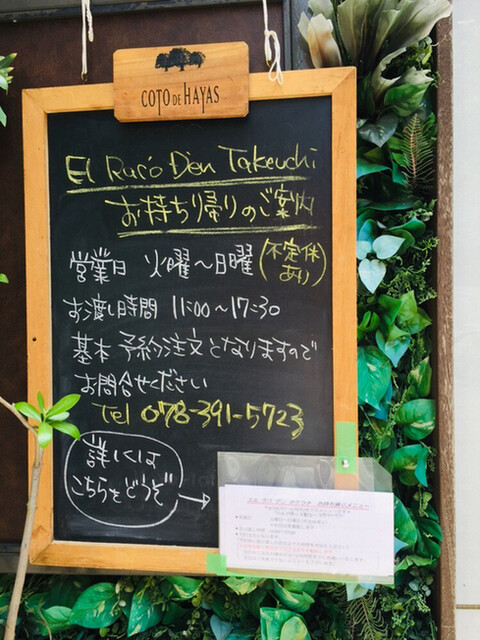 COTO DE HAYAS
El Racó D'en Takeuchi
お持ち帰りのご案内
営業日 火曜〜日曜(不定休あり)
お渡し時間 11:00〜17:30
基本 予約注文となりますので
お問合せください
Tel 078-391-5723
詳しくは
こちらをどうぞ